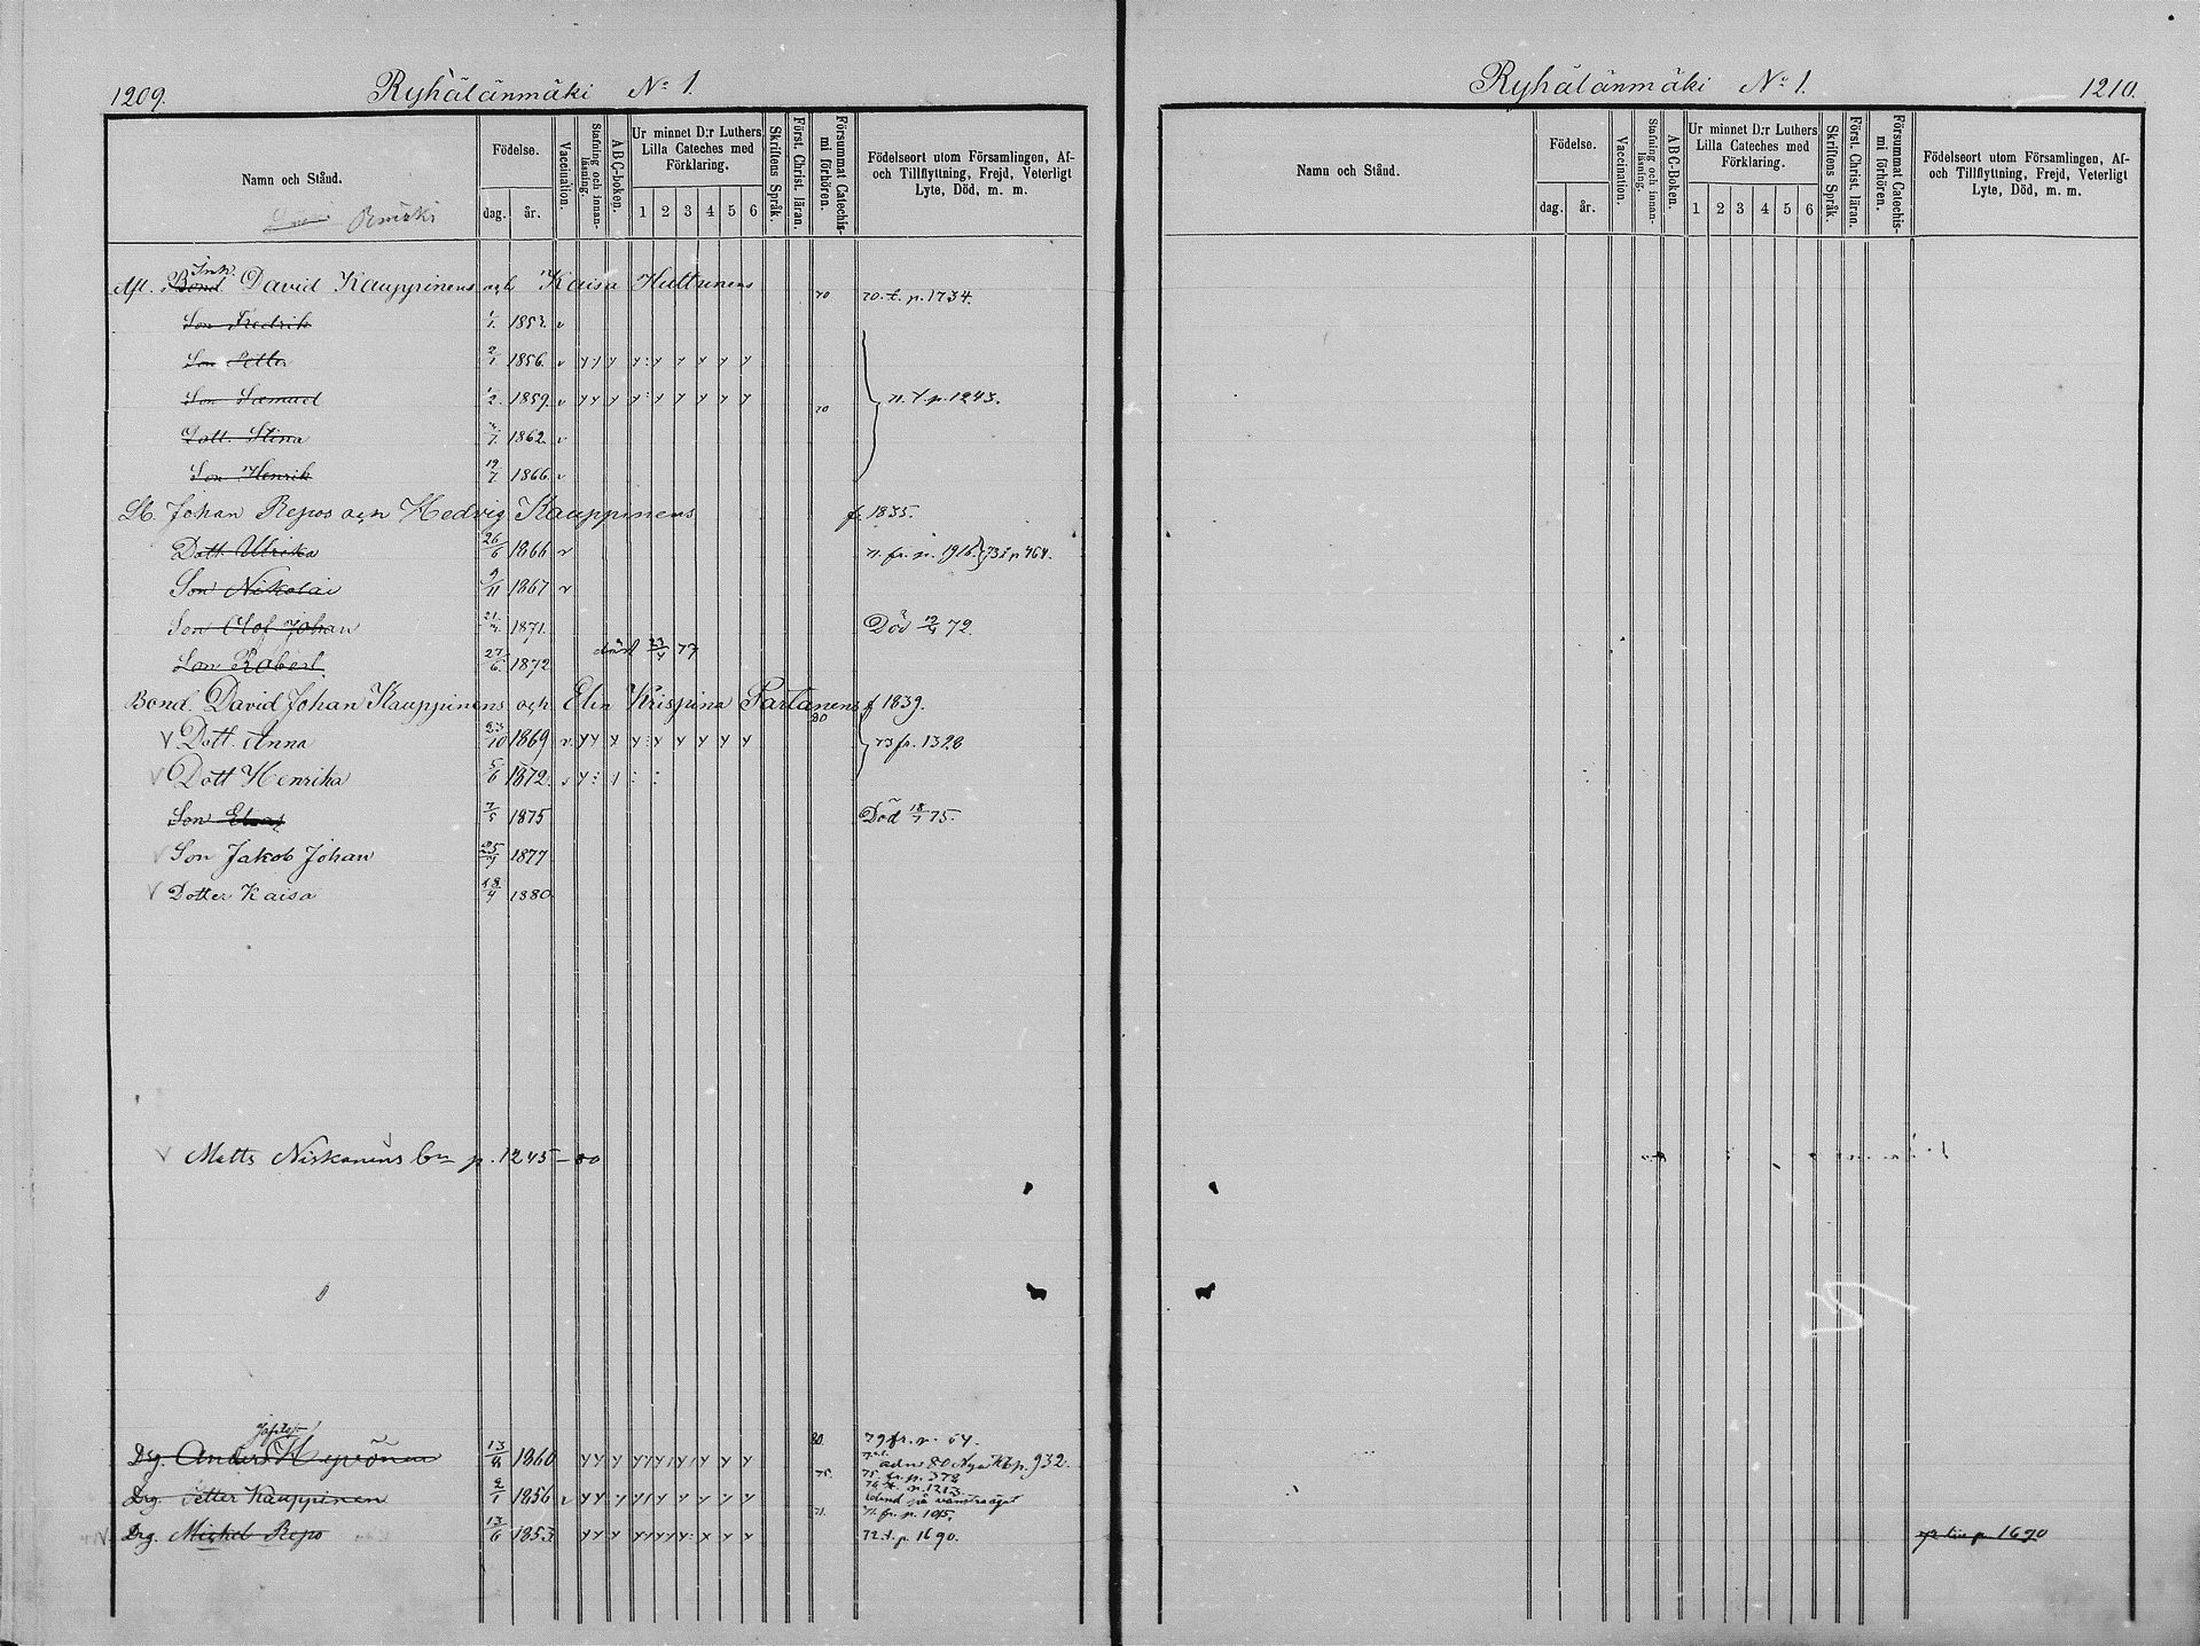 1209. Ryhälänmäki No 1.
Namn och Stånd.
Födelse.
dag. år.
Vaccination.
Stafning och innanläsning.
ABC-boken.
Ur minnet D:r Luthers Lilla Cateches med Förklaring.
1 2 3 4 5 6
Skriftens Språk.
Först. Christ. läran.
Försummat Catechismi förhören.
Födelseort utom Församlingen, Af- och Tillflyttning, Frejd, Veterligt Lyte, Död, m. m.
Inh.
Afl. Bond. David Kauppinens och Kaisa Huttunens 70 70. t. p. 1734.
Son Fredrik 1/1. 1853. v
Son Petter 2/1 1856. v
Son Samuel 1/2. 1859. v 70 71. t. p. 1243.
Dott. Stina 1862. v
Son Henrik 19/7 1866. v
Lb. Johan Repos och Hedvig Kauppinens f. 1835.
Dott. Ulrika 26/6 1866 v 71. fr. p. 1916. 73 t. p 464.
Son Nikolai 9/11 1867 v
Son Olof Johan 1871. Död 72.
Son Robert 27/6. 1872 död 23/4 77
Bond. David Johan Kauppinens och Elin Krispina Partanens f 1839.
80
v Dott. Anna 23/10 1869 v. 73 fr. 1328
v Dott Henrika 5/6 1872.
Son Elias 7/5 1875 Död 18/7 75.
v Son Jakob Johan 1877
v Dotter Kaisa 18/4 1880
v Matts Niskanens p. 1245 - 80
Drg. Anders Hyvönen 1860 80. 79 fr. p. 64.
80 Nya Kb p. 932.
Drg. Petter Kauppinen 2/1 1856 v 75. 75. fr. p. 378
76 t. p. 1213.
Drg. Mickel Repo 13/6 1853 71. 71. fr. p. 1015.
72. t. p. 1690.
Ryhälänmäki No 1. 1210.
Namn och Stånd.
Födelse.
dag. år.
Vaccination.
Stafning och innanläsning.
ABC-Boken.
Ur minnet D:r Luthers Lilla Cateches med Förklaring.
1 2 3 4 5 6
Skriftens Språk.
Först. Christ. läran.
Försummat Catechismi förhören.
Födelseort utom Församlingen, Af- och Tillflyttning, Frejd, Veterligt Lyte, Död, m. m.
p. 1690